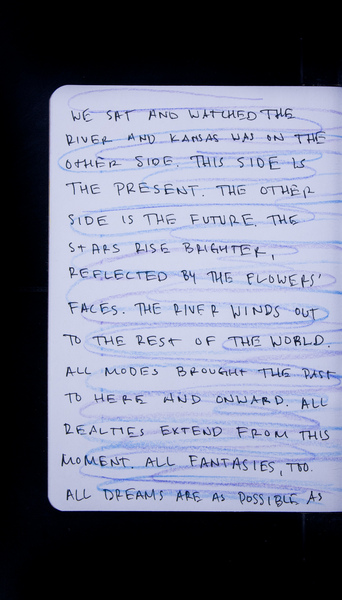 WE SAT AND WATCHED THE
RIVER AND KANSAS WAS ON THE
OTHER SIDE. THIS SIDE IS
THE PRESENT. THE OTHER
SIDE IS THE FUTURE. THE
STARS RISE BRIGHTER,
REFLECTED BY THE FLOWERS'
FACES. THE RIVER WINDS OUT
TO THE REST OF THE WORLD.
ALL MODES BROUGHT THE PAST
TO HERE AND ONWARD. ALL
REALTIES EXTEND FROM THIS
MOMENT. ALL FANTASIES, TOO.
ALL DREAMS ARE AS POSSIBLE AS